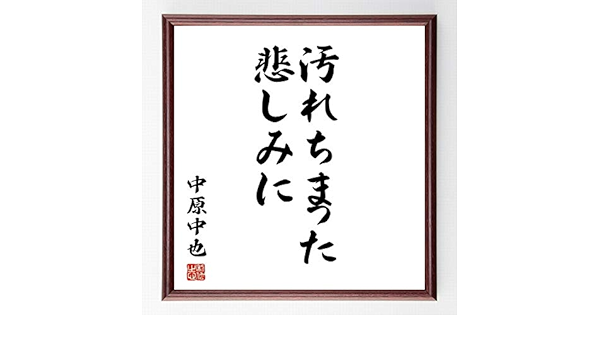 汚れちまった
悲しみに
中原中也